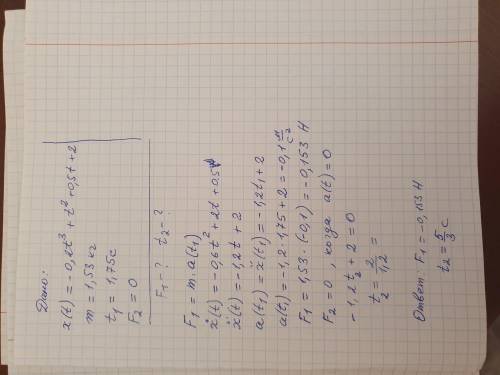 Дано:
x(t) = -0,2t³ + t² + 0,5t + 2
m = 1,53 кг
t₁ = 1,75 с
F₂ = 0
F₁ - ? t₂ - ?
F₁ = m · a(t₁)
ẋ(t) = -0,6t² + 2t + 0,5
ẍ(t) = -1,2t + 2
a(t₁) = ẍ(t₁) = -1,2t₁ + 2
a(t₁) = -1,2 · 1,75 + 2 = -0,1 м/с²
F₁ = 1,53 · (-0,1) = -0,153 Н
F₂ = 0, когда a(t) = 0
-1,2t₂ + 2 = 0
t₂ = 2/1,2 =
Ответ: F₁ = -0,153 Н
t₂ = 5/3 с